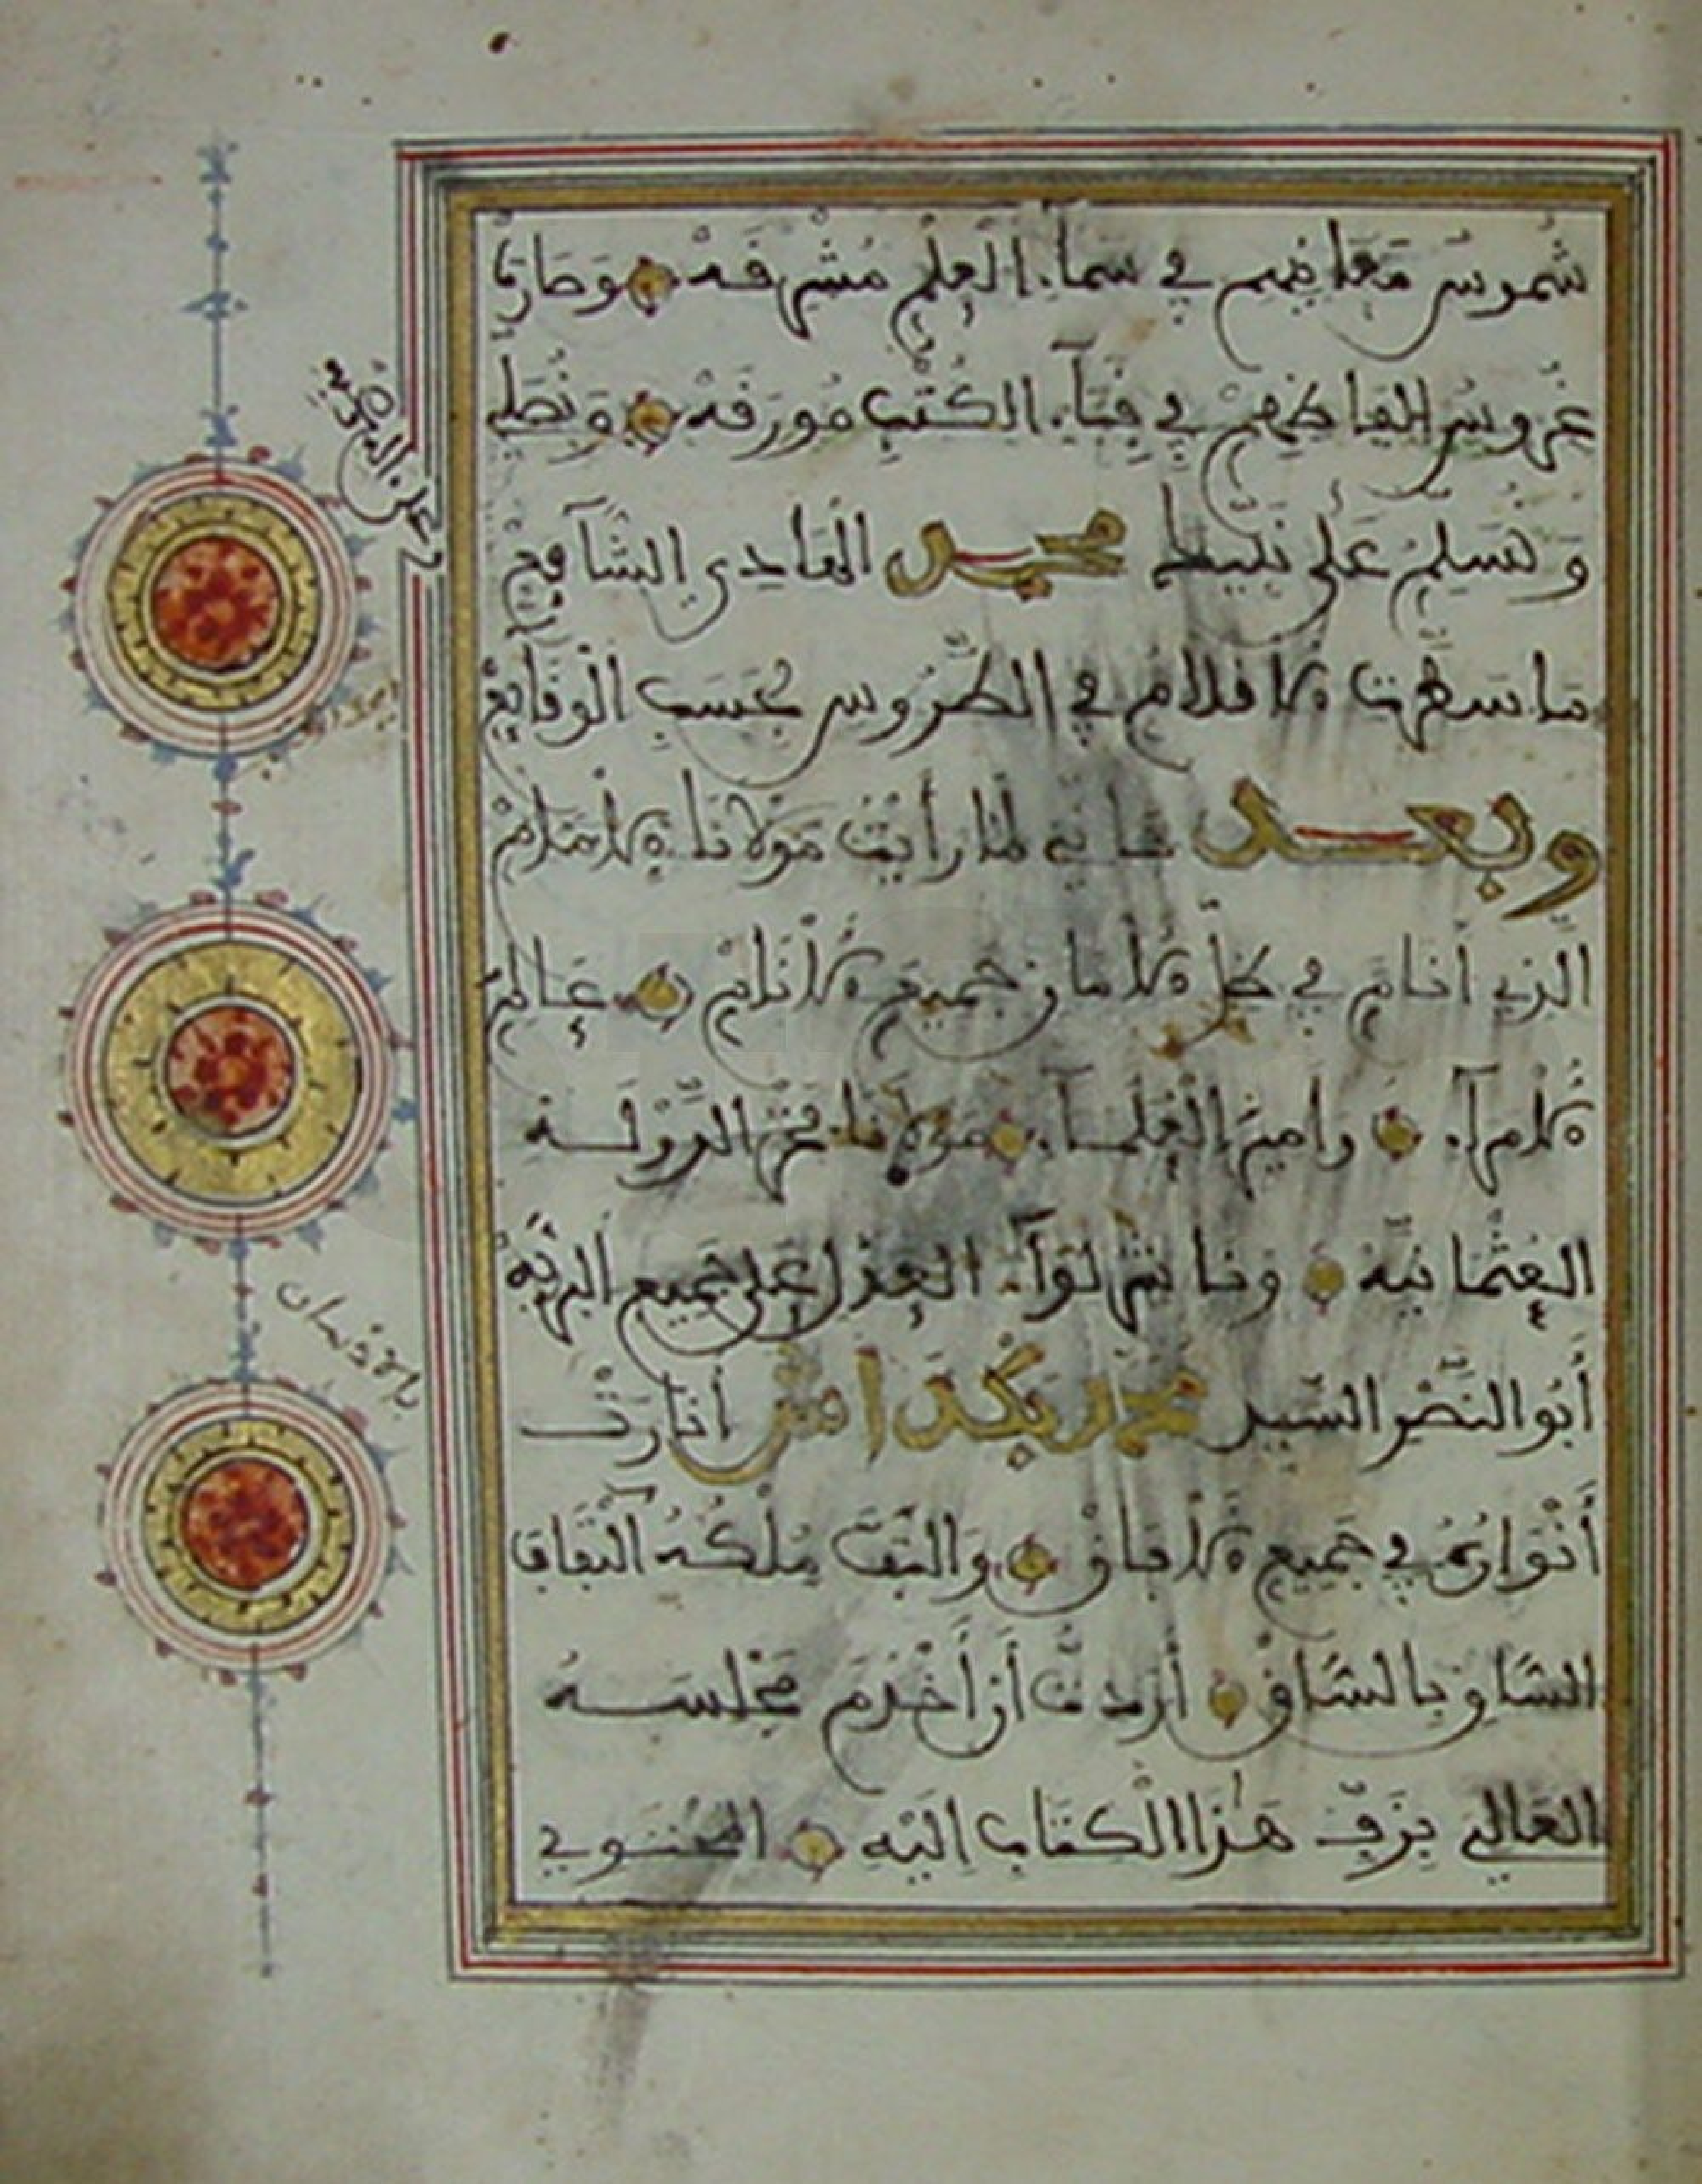 شموس معانيهم في سماء العلم مشرقه وصارت
غروس الفاظهم في فناء الكتب مورقه ونصلي
ونسلم على نبيك محمد الهادي الشافع
ما سطرت الاقلام في الطروس بحسب الوقايع
وبعد فاني لما رأيت مولانا الامام
الذي أنام في ظل الامان جميع الانام عالم
الامراء وامير العلماء مولانا فخر الدولة
العثمانيه وناشر لواء العدل على جميع البريه
أبو النصر السيد محمد بكداش أنارت
أنواره في جميع الافاق والتفت ملكه التفاف
الساق بالساق أردت أن أخدم مجلسه
العالي بزف هذا الكتاب اليه المحتوي
بالاذهان